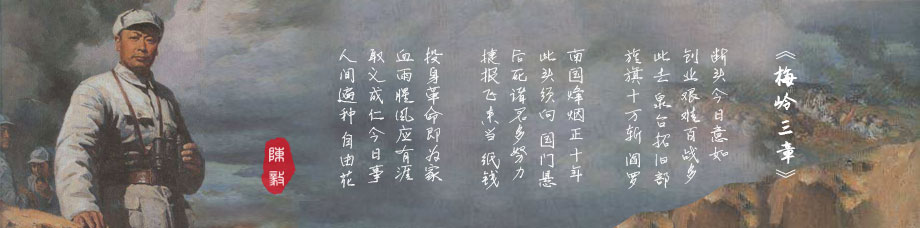 《梅岭三章》
断头今日意如
创业艰难百战多
此去泉台招旧部
旌旗十万斩阎罗
南国烽烟正十年
此头须向国门悬
后死诸君多努力
捷报飞来当纸钱
投身革命即为家
血雨腥风应有涯
取义成仁今日事
人间遍种自由花
陳毅